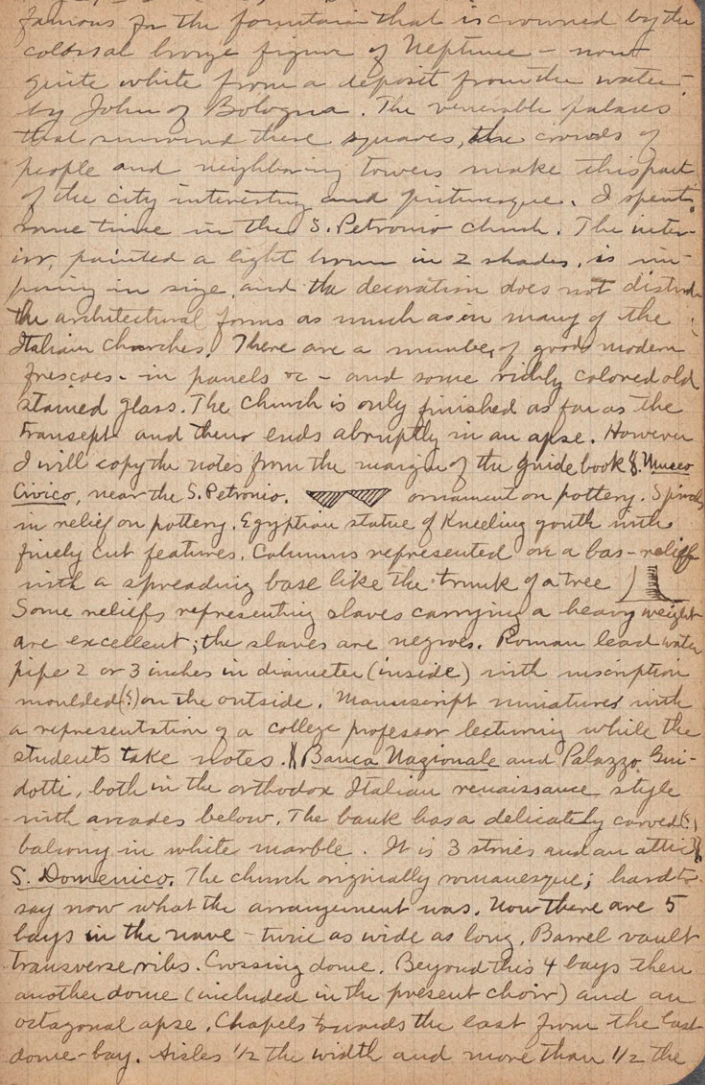 famous for the fountain that is crowned by the
colossal bronze figure of Neptune – now
quite white from a deposit from the water –
by John of Bologna. The venerable palaces
that surround these squares, the crowds of
people and neighboring towers make this part
of the city interesting and picturesque. I spent
some time in the S. Petronio church. The inter-
ior, painted a light brown in 2 shades, is im-
posing in size, and the decoration does not disturb
the architectural forms as much as in many of the
Italian churches. There are a number of good modern
frescoes – in panels or – and some richly colored old
stained glass. The church is only finished as far as the
transept and there ends abruptly in an apse. However
I will copy the notes from the margin of the guide book. Museo
Civico, near the S. Petronio. ornament on pottery. Spirals
in relief on pottery. Egyptian statue of kneeling youth with
finely cut features. Columns represented on a bas-relief
with a spreading base like the trunk of a tree
Some reliefs representing slaves carrying a heavy weight
are excellent; the slaves are negroes. Roman lead water
pipe 2 or 3 inches in diameter (inside) with inscription
moulded (?) on the outside. Manuscript miniatures with
a representation of a college professor lecturing while the
students take notes. Banca Nazionale and Palazzo Gui-
dotti, both in the orthodox Italian renaissance style
with arcades below. The bank has a delicately carved (?)
balcony in white marble. It is 3 stories and an attic
S. Domenico. The church originally romanesque; hard to
say now what the arrangement was. Now there are 5
bays in the nave – twice as wide as long. Barrel vault
transverse ribs. Crossing dome. Beyond this 4 bays then
another dome (included in the present choir) and an
octagonal apse. Chapels towards the east from the last
dome-bay. Aisles 1/2 the width and more than 1/2 the